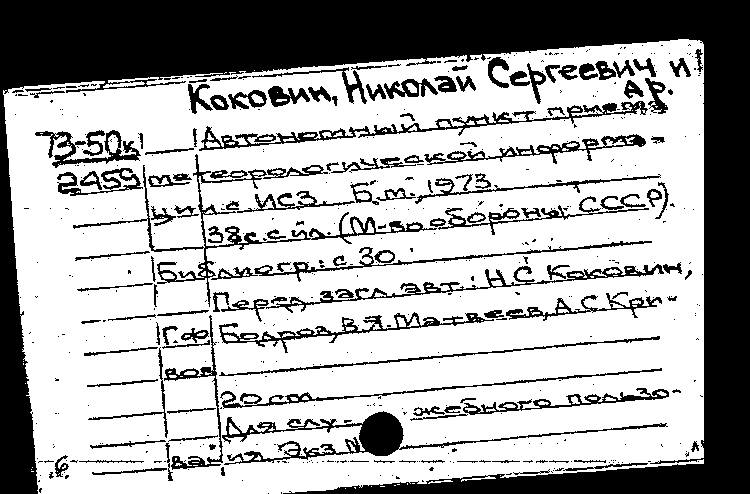 Коковин, Николай Сергеевич и
др.
73-50к Автономный пункт приема
2459 метеорологической информа-
ции с ИСЗ. Б.м., 1973.
38 с. с ил. (М-во обороны СССР).
Библиогр.: с 30.
Перед загл. авт.: Н.С. Коковин,
Г.Ф Бодров, В.Я. Матвеев, А.С. Кри-
вов.
20 cm.
Для слу- жебного пользо-
вания. Экз. №
б.